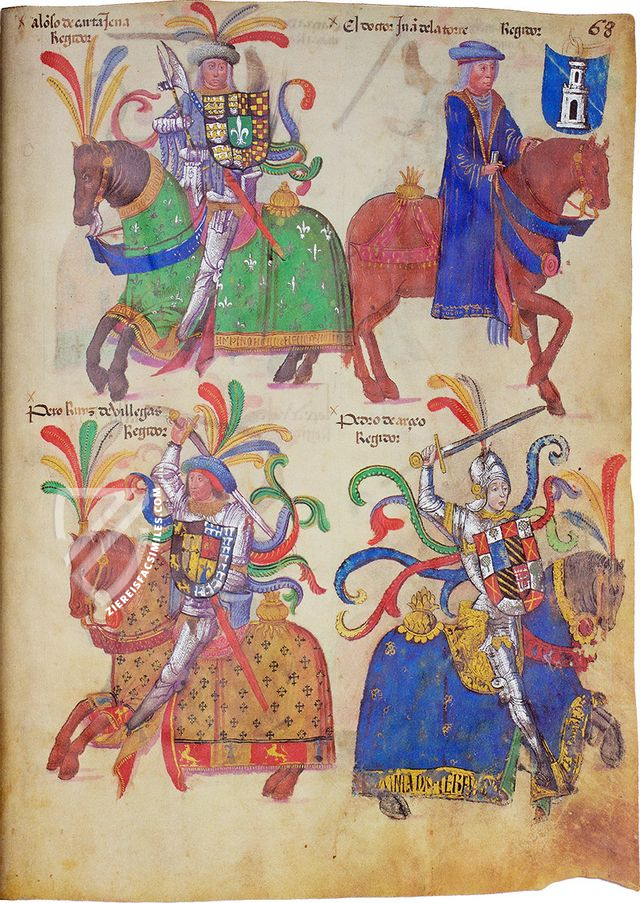 alōso de cartajena
Regidor
El doctor Juā de la torre Regidor
68
Pero Ruiz de Villegas
Regidor
Pedro de arçeo
Regidor
ZIEREISFACSIMILES.COM